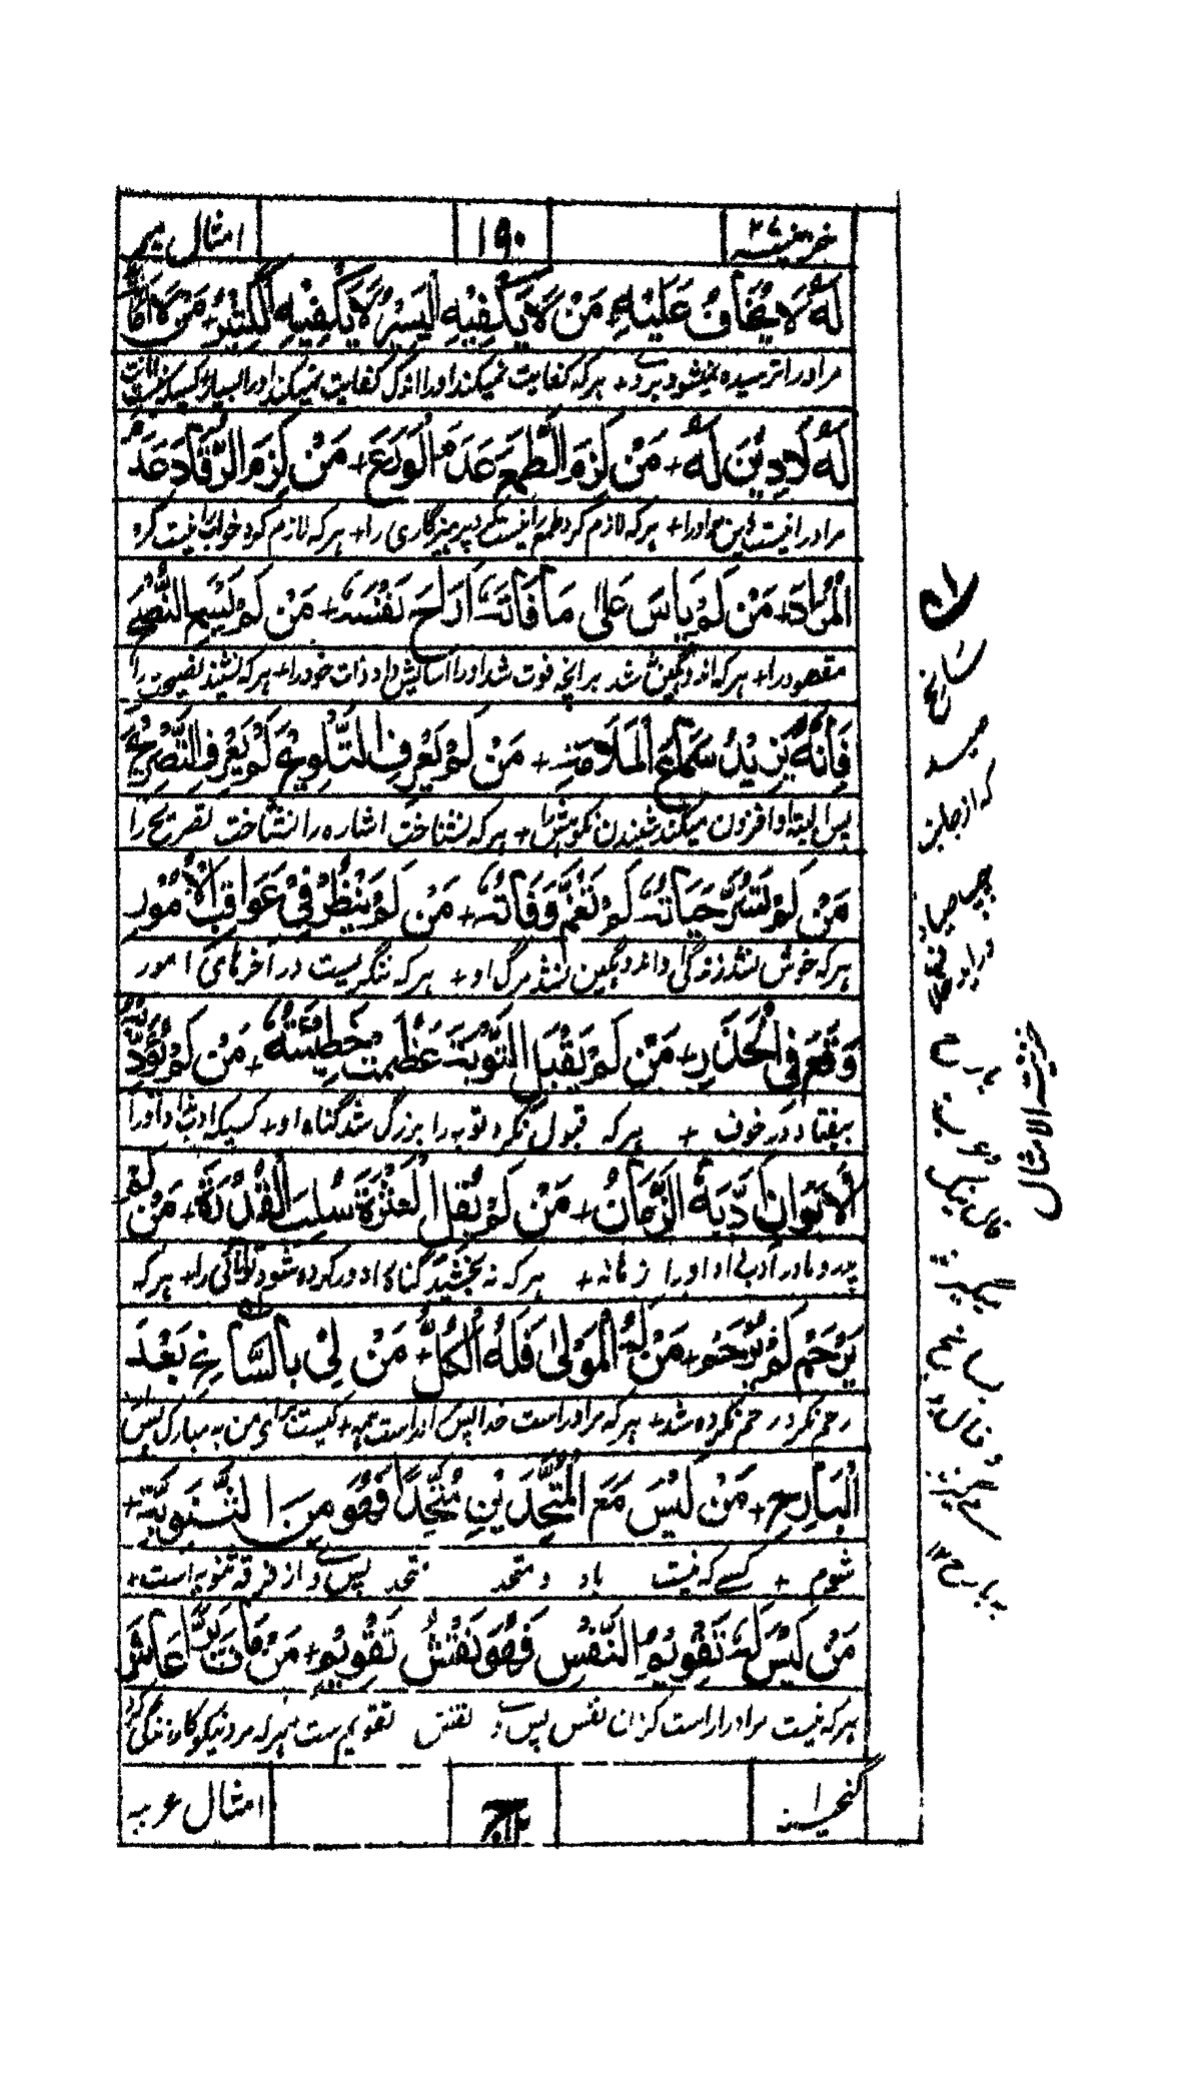 خزینه ۲۷ ۱۹۰ امثال میم
لَهُ لَا يُخَافُ عَلَيْهِ + مَنْ لَا يَكْفِيْهِ الْيَسِيْرُ لَا يَكْفِيْهِ الْكَثِيْرُ + مَنْ لَا اَمَانَةَ
مر او را ترسیده نمیشود برو + هرکه کفایت نمیکند او را اندک کفایت نمیکند او را بسیار + کسیکه نیست امانت
لَهُ لَا دِيْنَ لَهُ + مَنْ لَزِمَ الطَّمَعَ عَدِمَ الْوَرَعَ + مَنْ لَزِمَ الرُّقَادَ عَدِمَ
مر او را نیست دین مر او را + هرکه لازم کرد طمع را نیست کرد پرهیزگاری را + هرکه لازم کرد خواب را نیست کرد
الْمُرَادَ + مَنْ لَمْ يَاْسَ عَلٰى مَا فَاتَهُ اَرَاحَ نَفْسَهُ + مَنْ لَمْ يَسْمَعِ النُّصْحَ
مقصود را + هرکه اندوهگین نشد بر آنچه فوت شد او را آسایش داد ذات خود را + هرکه نشنید نصیحت را
فَاِنَّهُ يَزِيْدُ سَمَاعَ الْمَلَامَةِ + مَنْ لَمْ يَعْرِفِ التَّلْوِيْحَ لَمْ يَعْرِفِ التَّصْرِيْحَ
پس البته او افزون میکند شنیدن نکوهش را + هرکه نشناخت اشاره را نشناخت تصریح را
مَنْ لَمْ تَسُرَّ حَيَاتُهُ لَمْ تَغُمَّ وَفَاتُهُ + مَنْ لَمْ يَنْظُرْ فِيْ عَوَاقِبِ الْاُمُوْرِ
هرکه خوش نشد زندگی او اندوهگین نشد مرگ او + هرکه ننگریست در آخرهای امور
وَقَعَ فِي الْحَذَرِ + مَنْ لَمْ يَقْبَلِ التَّوْبَةَ عَظُمَتْ خَطِيْئَتُهُ + مَنْ لَمْ يُؤَدِّبْهُ
بیفتاد در خوف + هرکه قبول نکرد توبه را بزرگ شد گناه او + کسیکه ادب نداد او را
الْاَبَوَانِ اَدَّبَهُ الزَّمَانُ + مَنْ لَمْ يُقِلِ الْعَثْرَةَ سُلِبَ الْقُدْرَةَ + مَنْ لَمْ
پدر و مادر ادب داد او را زمانه + هرکه نه بخشید گناه را دور کرده شود توانائی را + هرکه
يَرْحَمْ لَمْ يُرْحَمْ + مَنْ لَهُ الْمَوْلٰى فَلَهُ الْكُلُّ + مَنْ لِيْ بِالسَّانِحِ بَعْدَ
رحم نکرد رحم نکرده شد + هرکه مر او راست خدا پس او راست همه + کیست برای من به مبارک پس
الْبَارِحِ + مَنْ لَيْسَ مَعَ الْمُتَّحِدَيْنِ مُتَّحِدًا فَهُوَ مِنَ الثَّنَوِيَّةِ +
شوم + کسے که نیست با دو متحد متحد پس او از فرقه ثنویه است +
مَنْ لَيْسَ لَهُ تَقْوِيْمُ النَّفْسِ فَهُوَ نَقْشُ تَقْوِيْمٍ + مَنْ مَاتَ بَرًّا عَاشَ
هرکه نیست مر او را راست کردن نفس پس او نقش تقویم ست + هرکه مرد نیکوکار زندگی کرد
گنجینه ۱ امثال عربیه
۱ه
سانح
صید
که از جانب
چپ
در آید
عرب
فال نیک
میگیرند
بسانح
و فال بد
میگیرند
به بارح ۱۲
خزینة الامثال